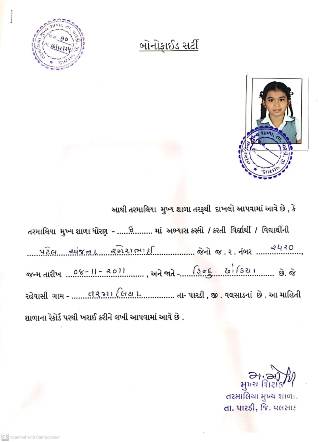 બોનોફાઈડ સર્ટી
આથી તરમાલિયા મુખ્ય શાળા તરફથી દાખલો આપવામાં આવે છે, કે
તરમાલિયા મુખ્ય શાળા ધોરણ - ૬ માં અભ્યાસ કરતી / કરતી વિદ્યાર્થી / વિદ્યાર્થીની
પટેલ અંજના રમેશભાઈ જેનો જ. ર. નંબર ૨૫૨૦,
જન્મ તારીખ ૦૪-૧૧-૨૦૧૧, અને જાતે - હિન્દુ ધોડિયા છે. જે
રહેવાસી ગામ - તરમાલિયા તા- પારડી, જી. વલસાડનાં છે. આ માહિતી
શાળાના રેકોર્ડ પરથી ખરાઈ કરીને લખી આપવામાં આવે છે.
મુખ્ય શિક્ષક
તરમાલિયા મુખ્ય શાળા
તા. પારડી, જિ. વલસાડ